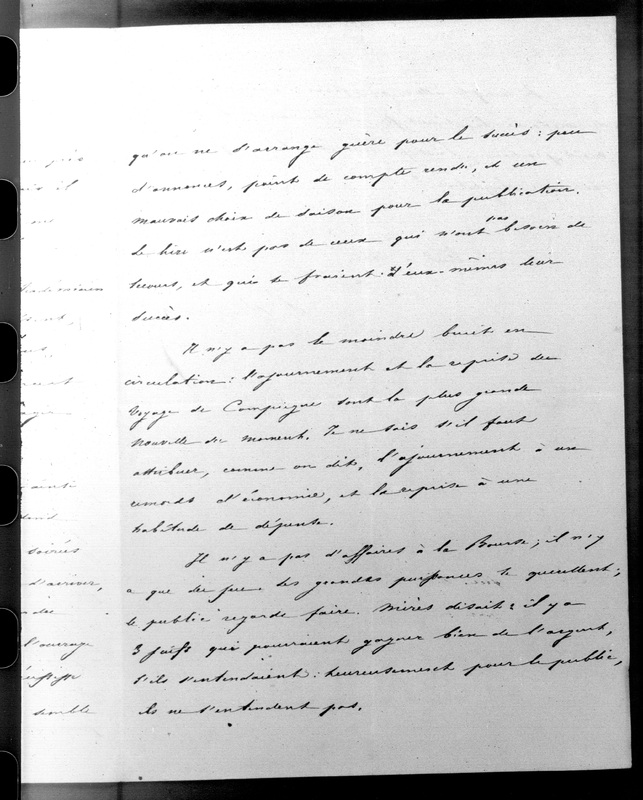 qu'on ne s'arrange guère pour le succès : peu
d'annonces, point de compte rendu, et un
mauvais choix de saison pour la publication.
Le livre n'est pas de ceux qui n'ont pas besoin de
secours, et qui se fraient d'eux-mêmes leur
succès.
Il n'y a pas le moindre bruit en
circulation : l'ajournement et la reprise du
voyage de Compiègne sont la plus grande
nouvelle du moment. Je ne sais s'il faut
attribuer, comme on dit, l'ajournement à un
remords d'économie, et la reprise à une
habitude de dépense.
Il n'y a pas d'affaires à la Bourse ; il n'y
a que du jeu. Les grandes puissances se querellent ;
le public regarde faire. Mirès disait : il y a
3 juifs qui pourraient gagner bien de l'argent,
s'ils s'entendaient : heureusement pour le public,
ils ne s'entendent pas.
pris
il
soirées
d'arriver,
l'ouvrage
semble